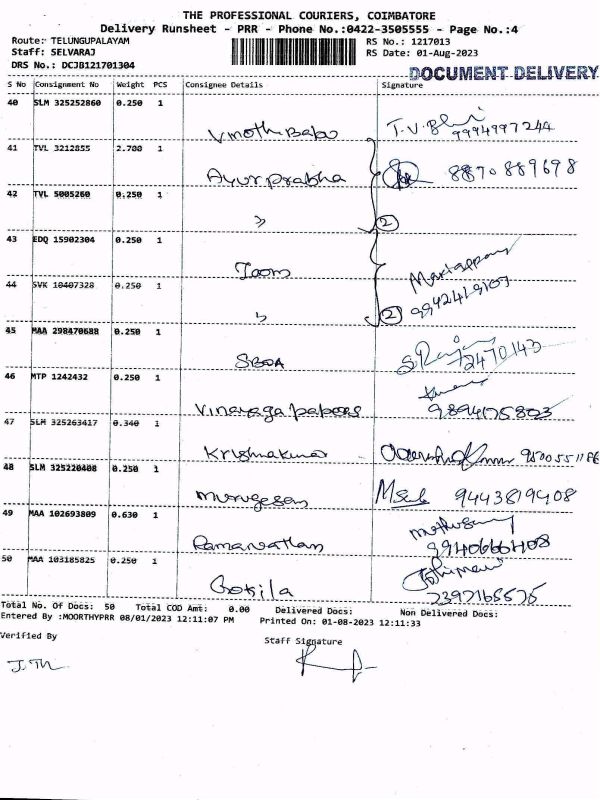 THE PROFESSIONAL COURIERS, COIMBATORE
Delivery Runsheet - PRR - Phone No.:0422-3505555 - Page No.:4
Route: TELUNGUPALAYAM RS No.: 1217013
Staff: SELVARAJ RS Date: 01-Aug-2023
DRS No.: DCJB121701304
DOCUMENT DELIVERY
S No Consignment No Weight PCS Consignee Details Signature
40 SLM 325252860 0.250 1
Vinoth Babu T.V. 9994997244
41 TVL 3212855 2.700 1
Ayurprabha 8870889698
42 TVL 5005260 0.250 1
" 2
43 EDQ 15902304 0.250 1
44 SVK 10407328 0.250 1
" 2
45 MAA 298470688 0.250 1
SBOA 2470143
46 MTP 1242432 0.250 1
Vinayaga papers
47 SLM 325263417 0.340 1
Krishnakumar
48 SLM 325220408 0.250 1
Murugesan 9443819408
49 MAA 102693809 0.630 1
Ramanathan
50 MAA 103185825 0.250 1
Gokila
Total No. Of Docs: 50 Total COD Amt: 0.00 Delivered Docs: Non Delivered Docs:
Entered By :MOORTHYPRR 08/01/2023 12:11:07 PM Printed On: 01-08-2023 12:11:33
Verified By Staff Signature